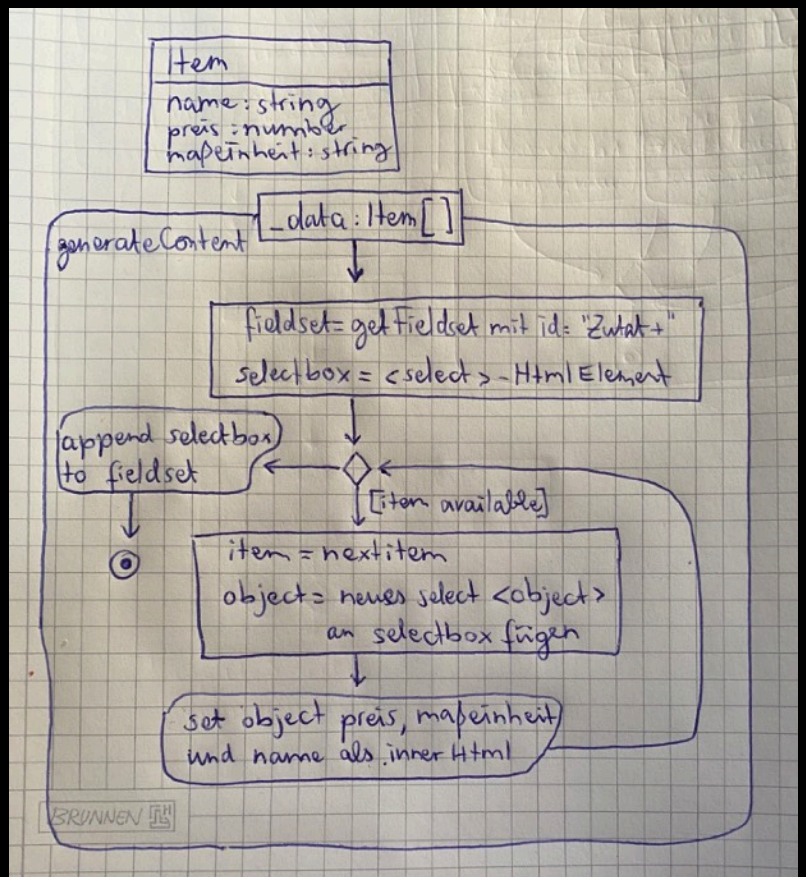 Item
name : string
preis : number
maßeinheit : string
_data : Item[]
generateContent
fieldset = get Fieldset mit id: "Zutat+"
selectbox = <select> - Html Element
append selectbox
to fieldset
[item available]
item = nextitem
object = neues select <object>
an selectbox fügen
set object preis, maßeinheit
und name als inner Html
BRUNNEN